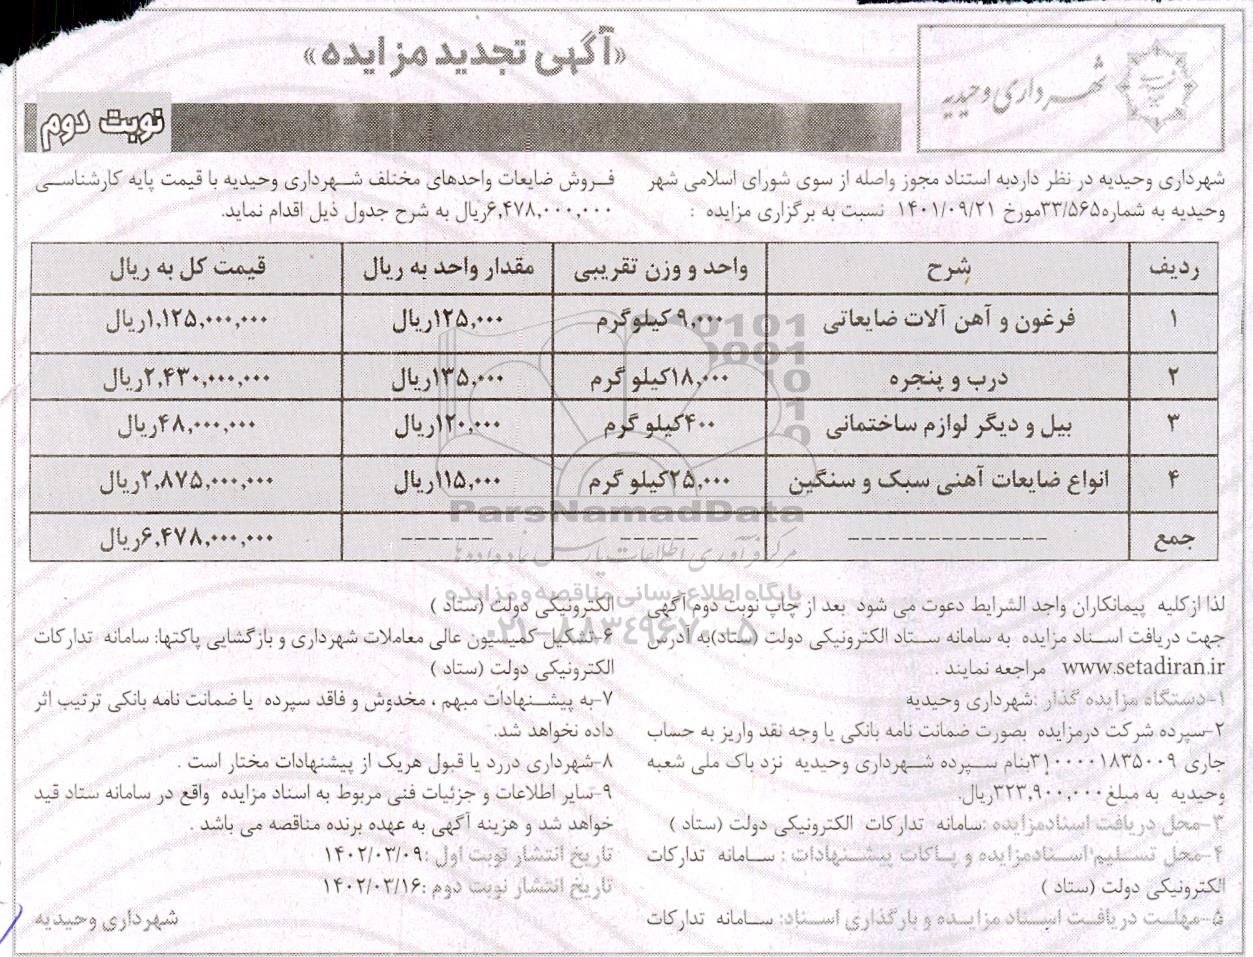 «آگهی تجدید مزایده»
شهرداری وحیدیه
نوبت دوم
شهرداری وحیدیه در نظر داردبه استناد مجوز واصله از سوی شورای اسلامی شهر
وحیدیه به شماره۳۳/۵۶۵مورخ ۱۴۰۱/۰۹/۲۱ نسبت به برگزاری مزایده :
فروش ضایعات واحدهای مختلف شهرداری وحیدیه با قیمت پایه کارشناسی
۶,۴۷۸,۰۰۰,۰۰۰ریال به شرح جدول ذیل اقدام نماید.
ردیف شرح واحد و وزن تقریبی مقدار واحد به ریال قیمت کل به ریال
۱ فرغون و آهن آلات ضایعاتی ۹,۰۰۰کیلوگرم ۱۲۵,۰۰۰ریال ۱,۱۲۵,۰۰۰,۰۰۰ریال
۲ درب و پنجره ۱۸,۰۰۰کیلو گرم ۱۳۵,۰۰۰ریال ۲,۴۳۰,۰۰۰,۰۰۰ریال
۳ بیل و دیگر لوازم ساختمانی ۴۰۰کیلو گرم ۱۲۰,۰۰۰ریال ۴۸,۰۰۰,۰۰۰ریال
۴ انواع ضایعات آهنی سبک و سنگین ۲۵,۰۰۰کیلو گرم ۱۱۵,۰۰۰ریال ۲,۸۷۵,۰۰۰,۰۰۰ریال
جمع --------------- ------ ------- ۶,۴۷۸,۰۰۰,۰۰۰ریال
ParsNamadData
مرکز فرآوری اطلاعات پارس نماد داده ها
پایگاه اطلاع رسانی مناقصه و مزایده
۰۲۱-۸۸۳۴۹۶۷۰-۵
لذا ازکلیه پیمانکاران واجد الشرایط دعوت می شود بعد از چاپ نوبت دوم آگهی
جهت دریافت اسناد مزایده به سامانه ستاد الکترونیکی دولت (ستاد)به آدرس
www.setadiran.ir مراجعه نمایند .
۱-دستگاه مزایده گذار :شهرداری وحیدیه
۲-سپرده شرکت درمزایده بصورت ضمانت نامه بانکی یا وجه نقد واریز به حساب
جاری ۳۱۰۰۰۰۱۸۳۵۰۰۹بنام سپرده شهرداری وحیدیه نزد باک ملی شعبه
وحیدیه به مبلغ۳۲۳,۹۰۰,۰۰۰ریال.
۳-محل دریافت اسنادمزایده :سامانه تدارکات الکترونیکی دولت (ستاد )
۴-محل تسلیم اسنادمزایده و پاکات پیشنهادات : سامانه تدارکات
الکترونیکی دولت (ستاد )
۵-مهلت دریافت اسناد مزایده و بارگذاری اسناد: سامانه تدارکات
الکترونیکی دولت (ستاد )
۶-تشکیل کمیسیون عالی معاملات شهرداری و بازگشایی پاکتها: سامانه تدارکات
الکترونیکی دولت (ستاد )
۷-به پیشنهادات مبهم ، مخدوش و فاقد سپرده یا ضمانت نامه بانکی ترتیب اثر
داده نخواهد شد.
۸-شهرداری دررد یا قبول هریک از پیشنهادات مختار است .
۹-سایر اطلاعات و جزئیات فنی مربوط به اسناد مزایده واقع در سامانه ستاد قید
خواهد شد و هزینه آگهی به عهده برنده مناقصه می باشد .
تاریخ انتشار نوبت اول :۱۴۰۲/۰۳/۰۹
تاریخ انتشار نوبت دوم :۱۴۰۲/۰۳/۱۶
شهرداری وحیدیه